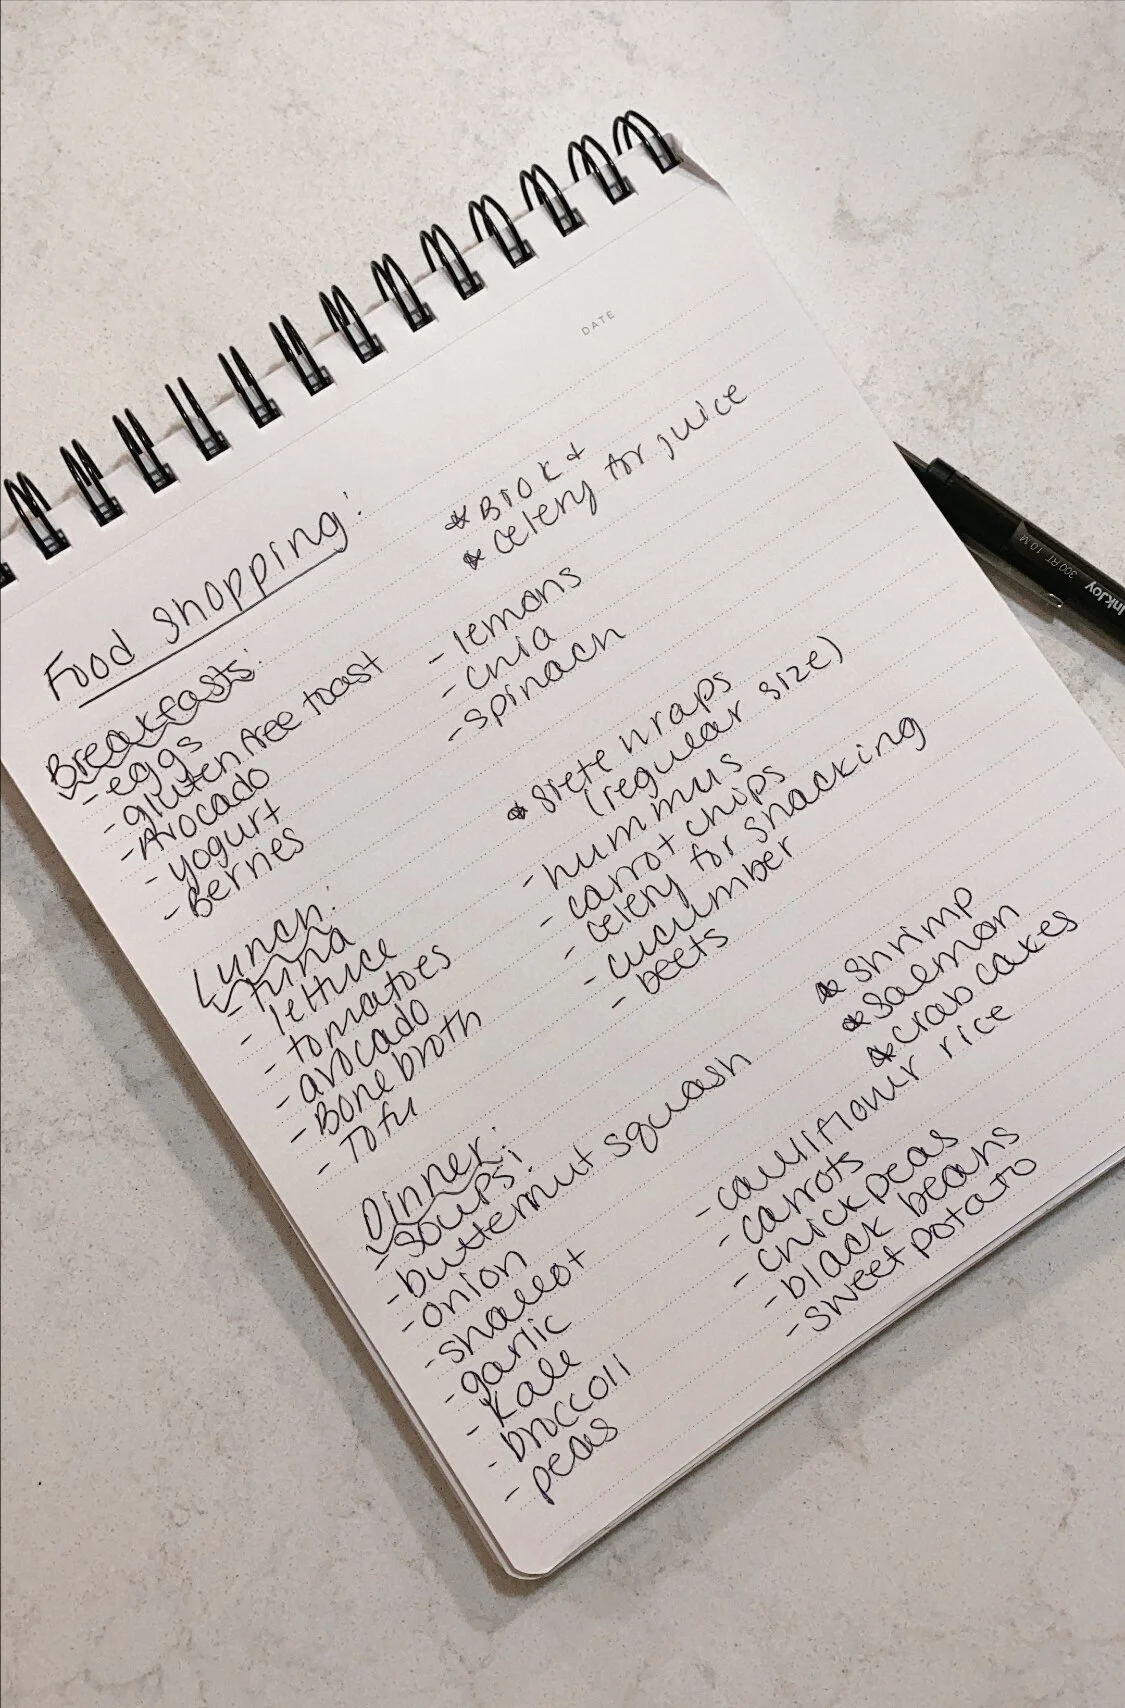 DATE
Food Shopping:
* BIOK +
* celery for juice
Breakfasts:
- eggs
- gluten free toast
- Avocado
- yogurt
- Berries
- lemons
- chia
- spinach
Lunch:
- tuna
- lettuce
- tomatoes
- avocado
- Bone broth
- Tofu
* Siete wraps
(regular size)
- hummus
- carrot chips
- celery for snacking
- cucumber
- beets
Dinner:
- soups:
- butternut squash
- onion
- shallot
- garlic
- kale
- broccoli
- peas
* Shrimp
* Salmon
* crab cakes
- cauliflower rice
- carrots
- chickpeas
- black beans
- sweet potato
InkJoy
300 RT 1.0 M